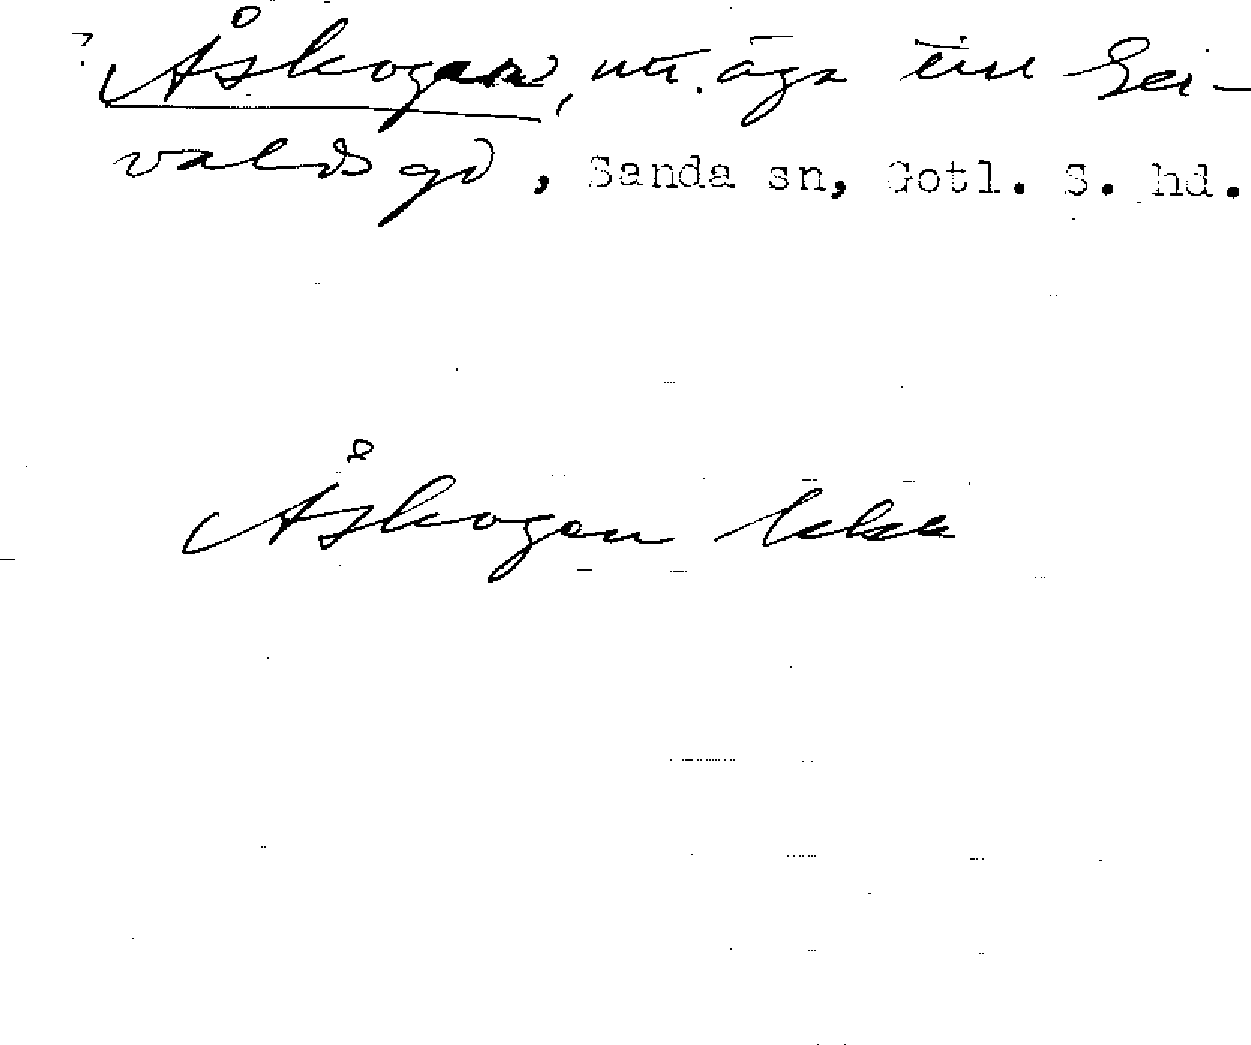 ? Åskogen, utä. äga till Gei-
valds gd, Sanda sn, Gotl. S. hd.
Åskogen